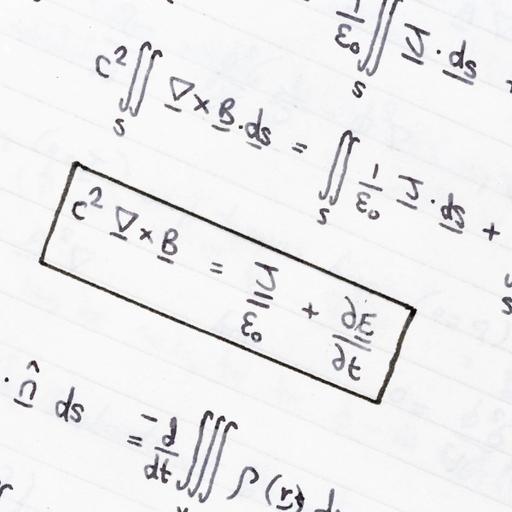 1/ε₀ ∬_S J̲ · d̲s̲
c² ∬_S ∇̲ × B̲ · d̲s̲ = ∬_S 1/ε₀ J̲ · d̲s̲ +
c² ∇̲ × B̲ = J̲/ε₀ + ∂E̲/∂t
· n̲̂ ds = -d/dt ∭ ρ (r̲